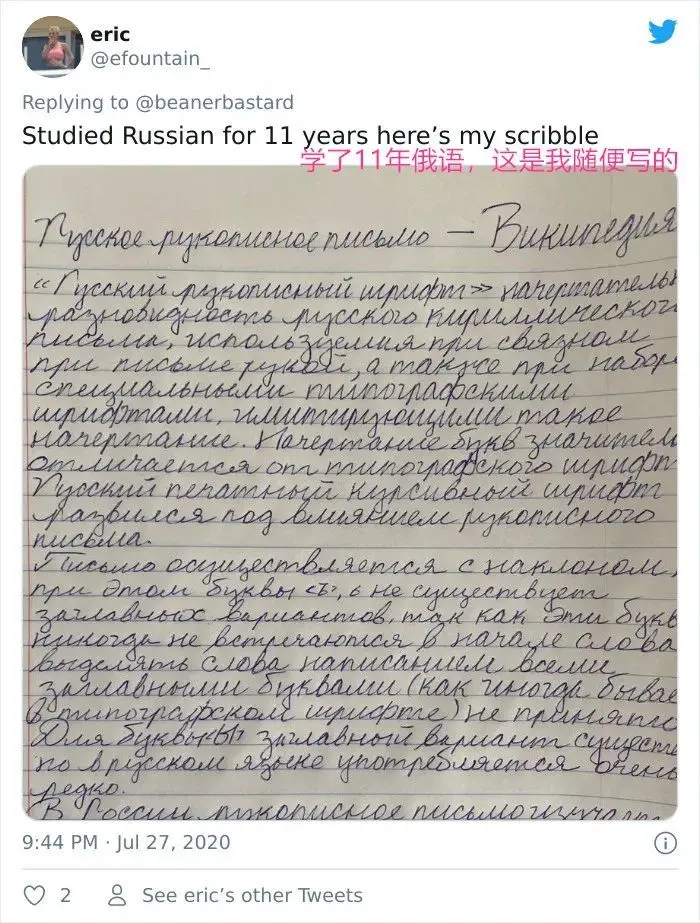 eric
@efountain_
Replying to @beanerbastard
Studied Russian for 11 years here’s my scribble
学了11年俄语，这是我随便写的
Русское рукописное письмо — Википедия
“Русский рукописный шрифт>> начертатель
разновидность русского кириллическог
письма, используемая при связном
при письме рукой, а также при набор
специальными типографскими
шрифтами, имитирующими такое
начертание. Начертание букв значител
отличается от типографского шрифт
Русский печатный курсивный шрифт
развился под влиянием рукописного
письма.
Письмо осуществляется с наклоном,
при этом буквы не существует
заглавных вариантов, так как эти букв
никогда не встречаются в начале слова
выделять слова написанием всеми
заглавными буквами (как иногда бывае
в типографском шрифте) не принято
Для буквы заглавный вариант существ
но в русском языке употребляется очень
редко.
В России рукописное письмо
9:44 PM · Jul 27, 2020
2
See eric’s other Tweets